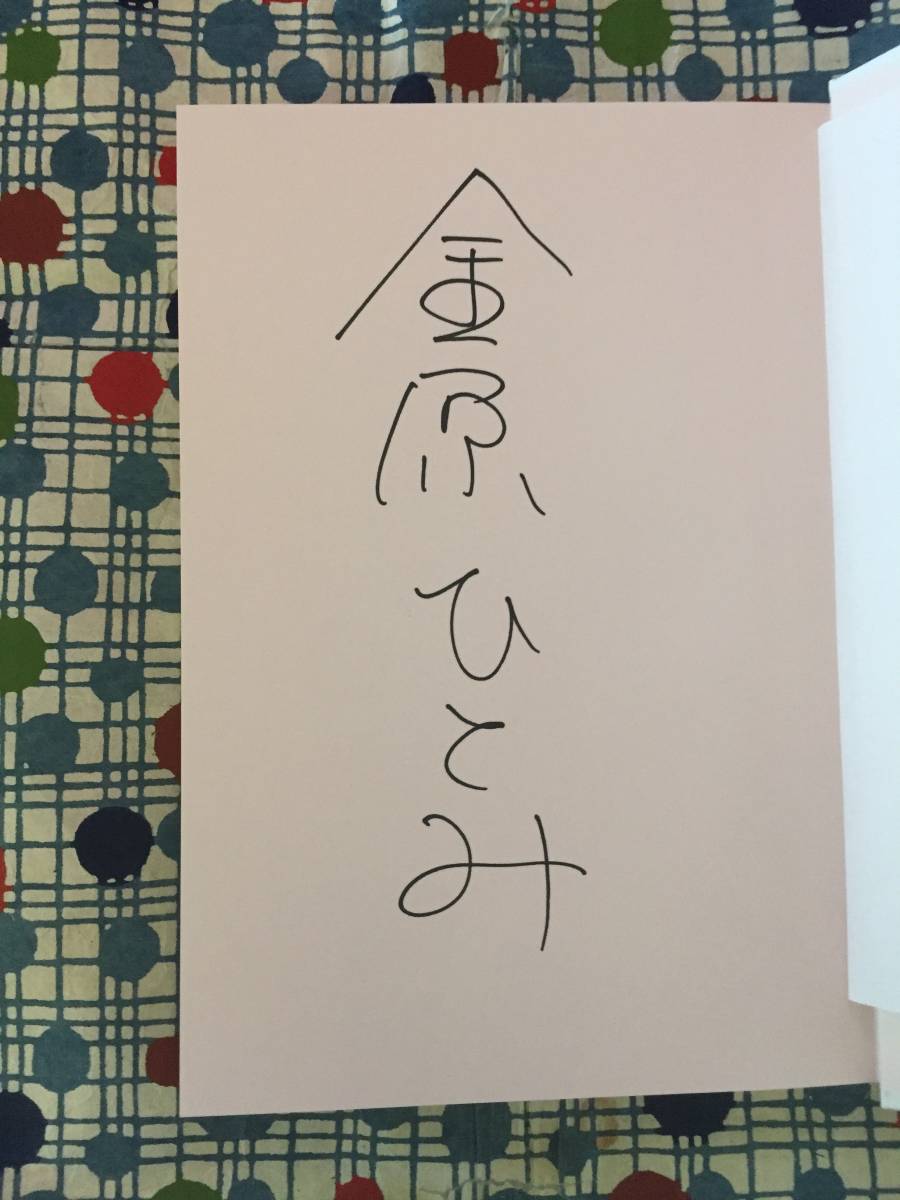 金原ひとみ